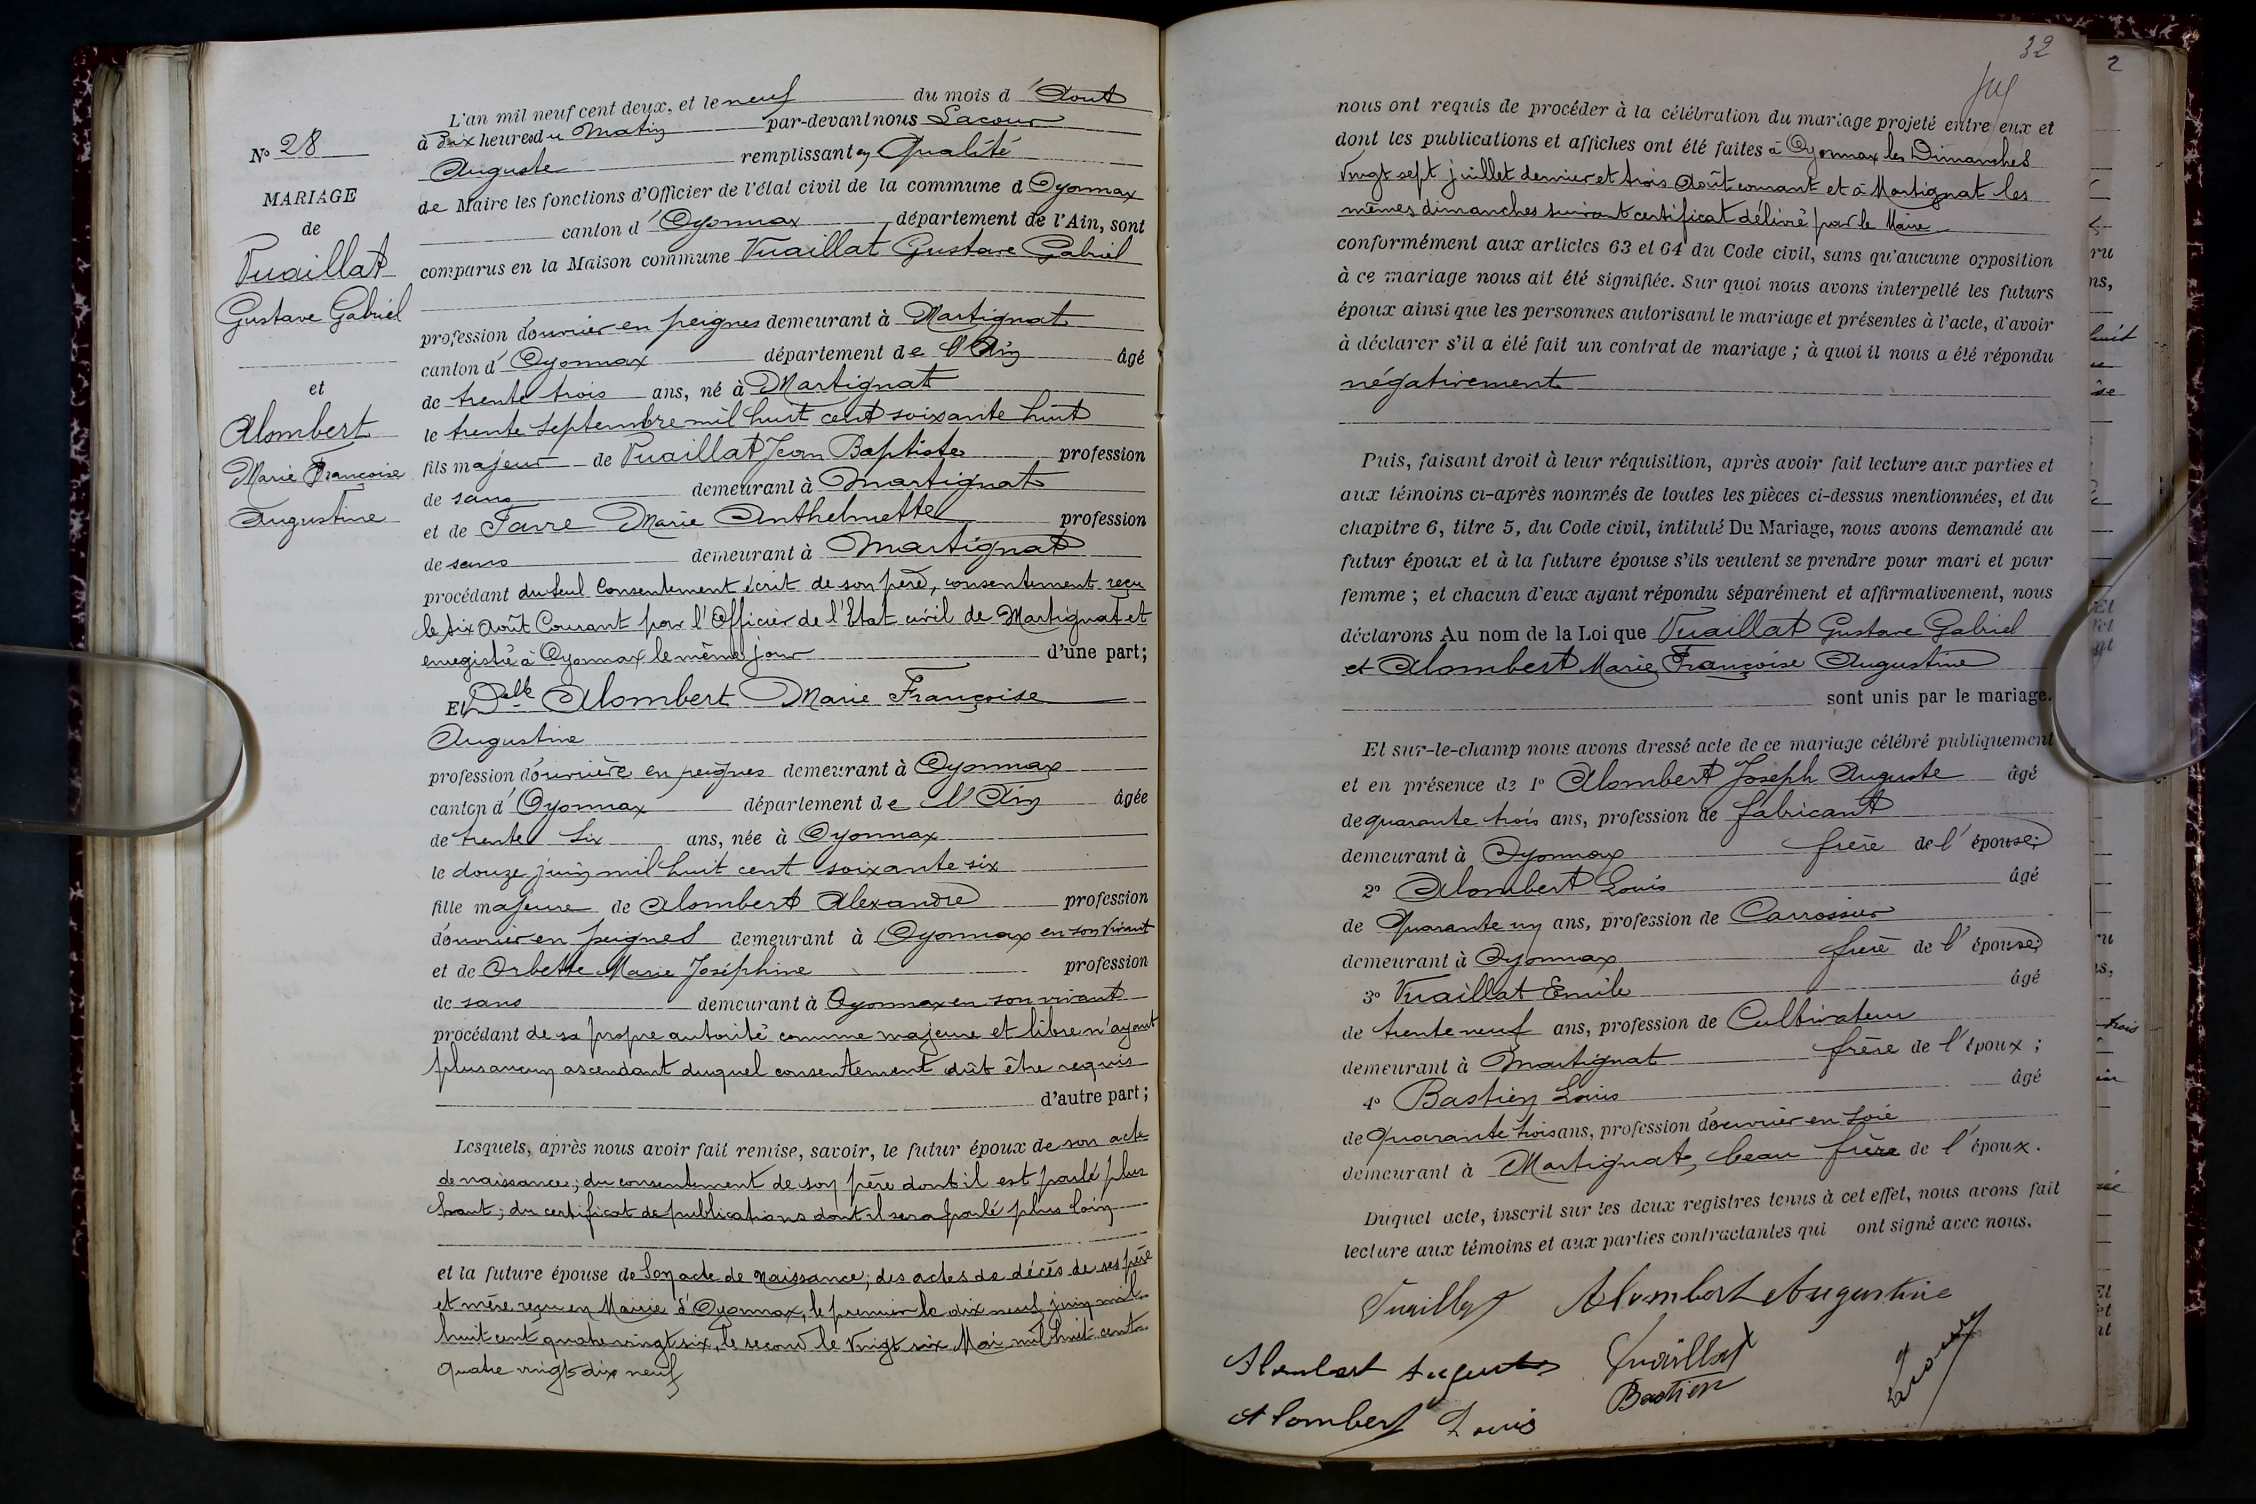 N° 28
MARIAGE
de
Vuaillat
Gustave Gabriel
et
Alombert
Marie Françoise
Augustine
L'an mil neuf cent deux, et le neuf du mois d'Août
à Dix heures du Matin par-devant nous Lacour
Auguste remplissant en Qualité
de Maire les fonctions d'Officier de l'état civil de la commune d Oyonnax
canton d'Oyonnax département de l'Ain, sont
comparus en la Maison commune Vuaillat Gustave Gabriel
profession d'ouvrier en peignes demeurant à Martignat
canton d'Oyonnax département de l'Ain âgé
de trente trois ans, né à Martignat
le trente Septembre mil huit cent soixante huit
fils majeur de Vuaillat Jean Baptiste profession
de sans demeurant à Martignat
et de Favre Marie Anthelmette profession
de sans demeurant à Martignat
procédant du seul Consentement écrit de son père, consentement reçu
le six Août Courant par l'Officier de l'Etat civil de Martignat et
enregistré à Oyonnax le même jour d'une part;
Et Delle Alombert Marie Françoise
Augustine
profession d'ouvrière en peignes demeurant à Oyonnax
canton d'Oyonnax département de l'Ain âgée
de trente six ans, née à Oyonnax
le douze juin mil huit cent soixante six
fille majeure de Alombert Alexandre profession
d'ouvrier en peignes demeurant à Oyonnax en son vivant
et de Orbette Marie Joséphine profession
de sans demeurant à Oyonnax en son vivant
procédant de sa propre autorité comme majeure et libre n'ayant
plus aucun ascendant duquel consentement dût être requis
d'autre part;
Lesquels, après nous avoir fait remise, savoir, le futur époux de son acte
de naissance; du consentement de son père dont il est parlé plus
haut; du certificat de publications dont il sera parlé plus loin
et la future épouse de son acte de naissance; des actes de décès de ses père
et mère reçu en Mairie d'Oyonnax, le premier le dix neuf juin mil
huit cent quatre vingt six, le second le Vingt six Mai mil huit cent
quatre vingt dix neuf
32
nous ont requis de procéder à la célébration du mariage projeté entre eux et
dont les publications et affiches ont été faites à Oyonnax les Dimanches
Vingt sept juillet dernier et trois Août courant et à Martignat les
mêmes dimanches suivant certificat délivré par le Maire
conformément aux articles 63 et 64 du Code civil, sans qu'aucune opposition
à ce mariage nous ait été signifiée. Sur quoi nous avons interpellé les futurs
époux ainsi que les personnes autorisant le mariage et présentes à l'acte, d'avoir
à déclarer s'il a été fait un contrat de mariage; à quoi il nous a été répondu
négativement
Puis, faisant droit à leur réquisition, après avoir fait lecture aux parties et
aux témoins ci-après nommés de toutes les pièces ci-dessus mentionnées, et du
chapitre 6, titre 5, du Code civil, intitulé Du Mariage, nous avons demandé au
futur époux et à la future épouse s'ils veulent se prendre pour mari et pour
femme; et chacun d'eux ayant répondu séparément et affirmativement, nous
déclarons Au nom de la Loi que Vuaillat Gustave Gabriel
et Alombert Marie Françoise Augustine
sont unis par le mariage.
Et sur-le-champ nous avons dressé acte de ce mariage célébré publiquement
et en présence de 1° Alombert Joseph Auguste âgé
de quarante trois ans, profession de fabricant
demeurant à Oyonnax frère de l'épouse;
2° Alombert Louis âgé
de Quarante un ans, profession de Carrossier
demeurant à Oyonnax frère de l'épouse;
3° Vuaillat Emile âgé
de trente neuf ans, profession de Cultivateur
demeurant à Martignat frère de l'époux;
4° Bastien Louis âgé
de Quarante trois ans, profession d'ouvrier en Soie
demeurant à Martignat, beau frère de l'époux.
Duquel acte, inscrit sur les deux registres tenus à cet effet, nous avons fait
lecture aux témoins et aux parties contractantes qui ont signé avec nous.
Vuaillat Alombert Augustine
Alombert Auguste Vuaillat
Bastien
Alombert Louis
Lacour